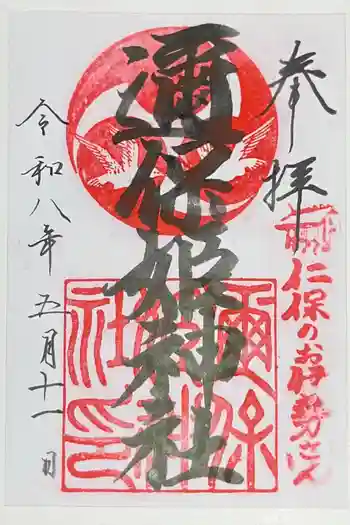 奉拝
仁保のお伊勢さん
邇保姫神社
令和八年五月十一日